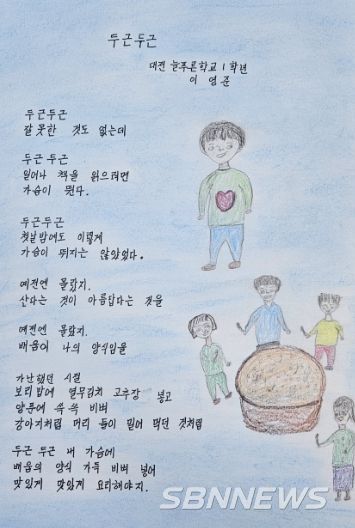 두근두근
대전 늘푸른학교 1학년
이영준
두근두근
잘못한 것도 없는데
두근두근
일어나 책을 읽으려면
가슴이 뛴다.
두근두근
첫날밤에도 이렇게
가슴이 뛰지는 않았었다.
예전엔 몰랐지.
산다는 것이 아름답다는 것을
예전엔 몰랐지.
배움이 나의 양식임을
가난했던 시절
보리밥에 열무김치 고추장 넣고
양푼에 쓱쓱 비벼
강아지처럼 머리 들이 밀어 먹던 것처럼
두근두근 내 가슴에
배움의 양식 가득 비벼 넣어
맛있게 맛있게 요리해야지.
SBNNEWS